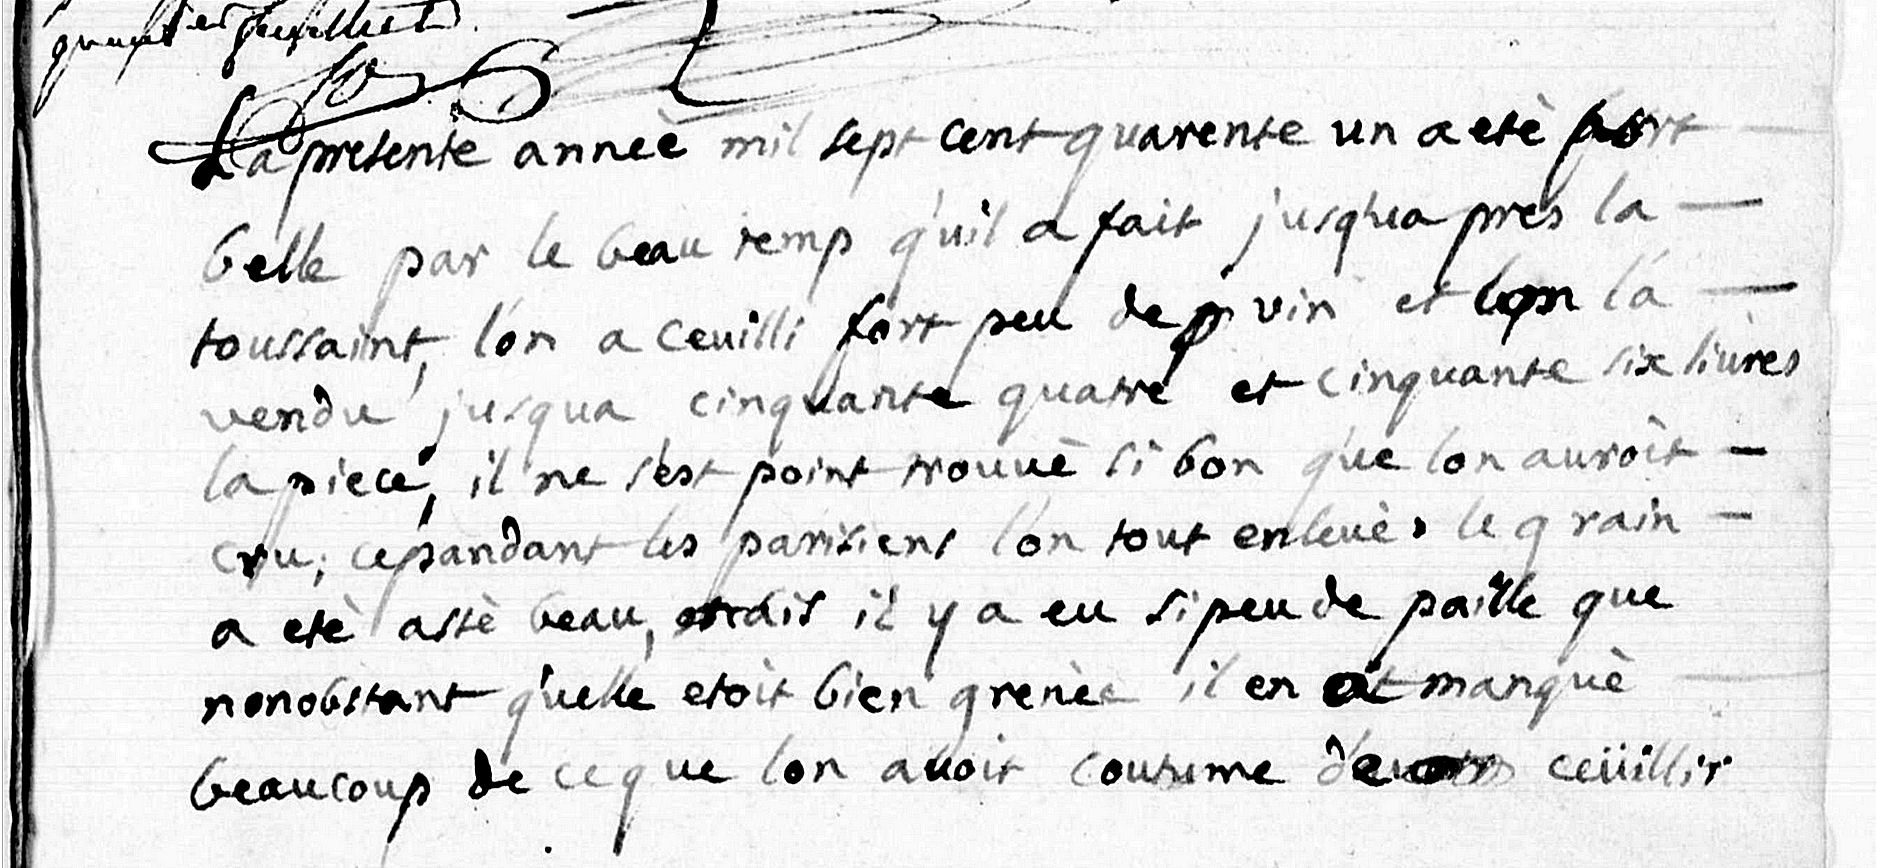 La presente anneè mil sept cent quarente un a etè fort
belle par le beau temp q'uil a fait jusq'ua pres la
toussaint, l'on a ceuilli fort peu de vin et lon la
vendu jusqua cinquante quatre et cinquante six livres
la piece, il ne s'est point trouvè si bon q'ue lon auroit
cru; cepandant les parisiens l'on tout enlevè, le grain
a etè assè beau, il y a eu si peu de paille que
nonobstant q'uelle etoit bien grenèe il en at manquè
beaucoup de ce que lon avoit coutume ceüillir